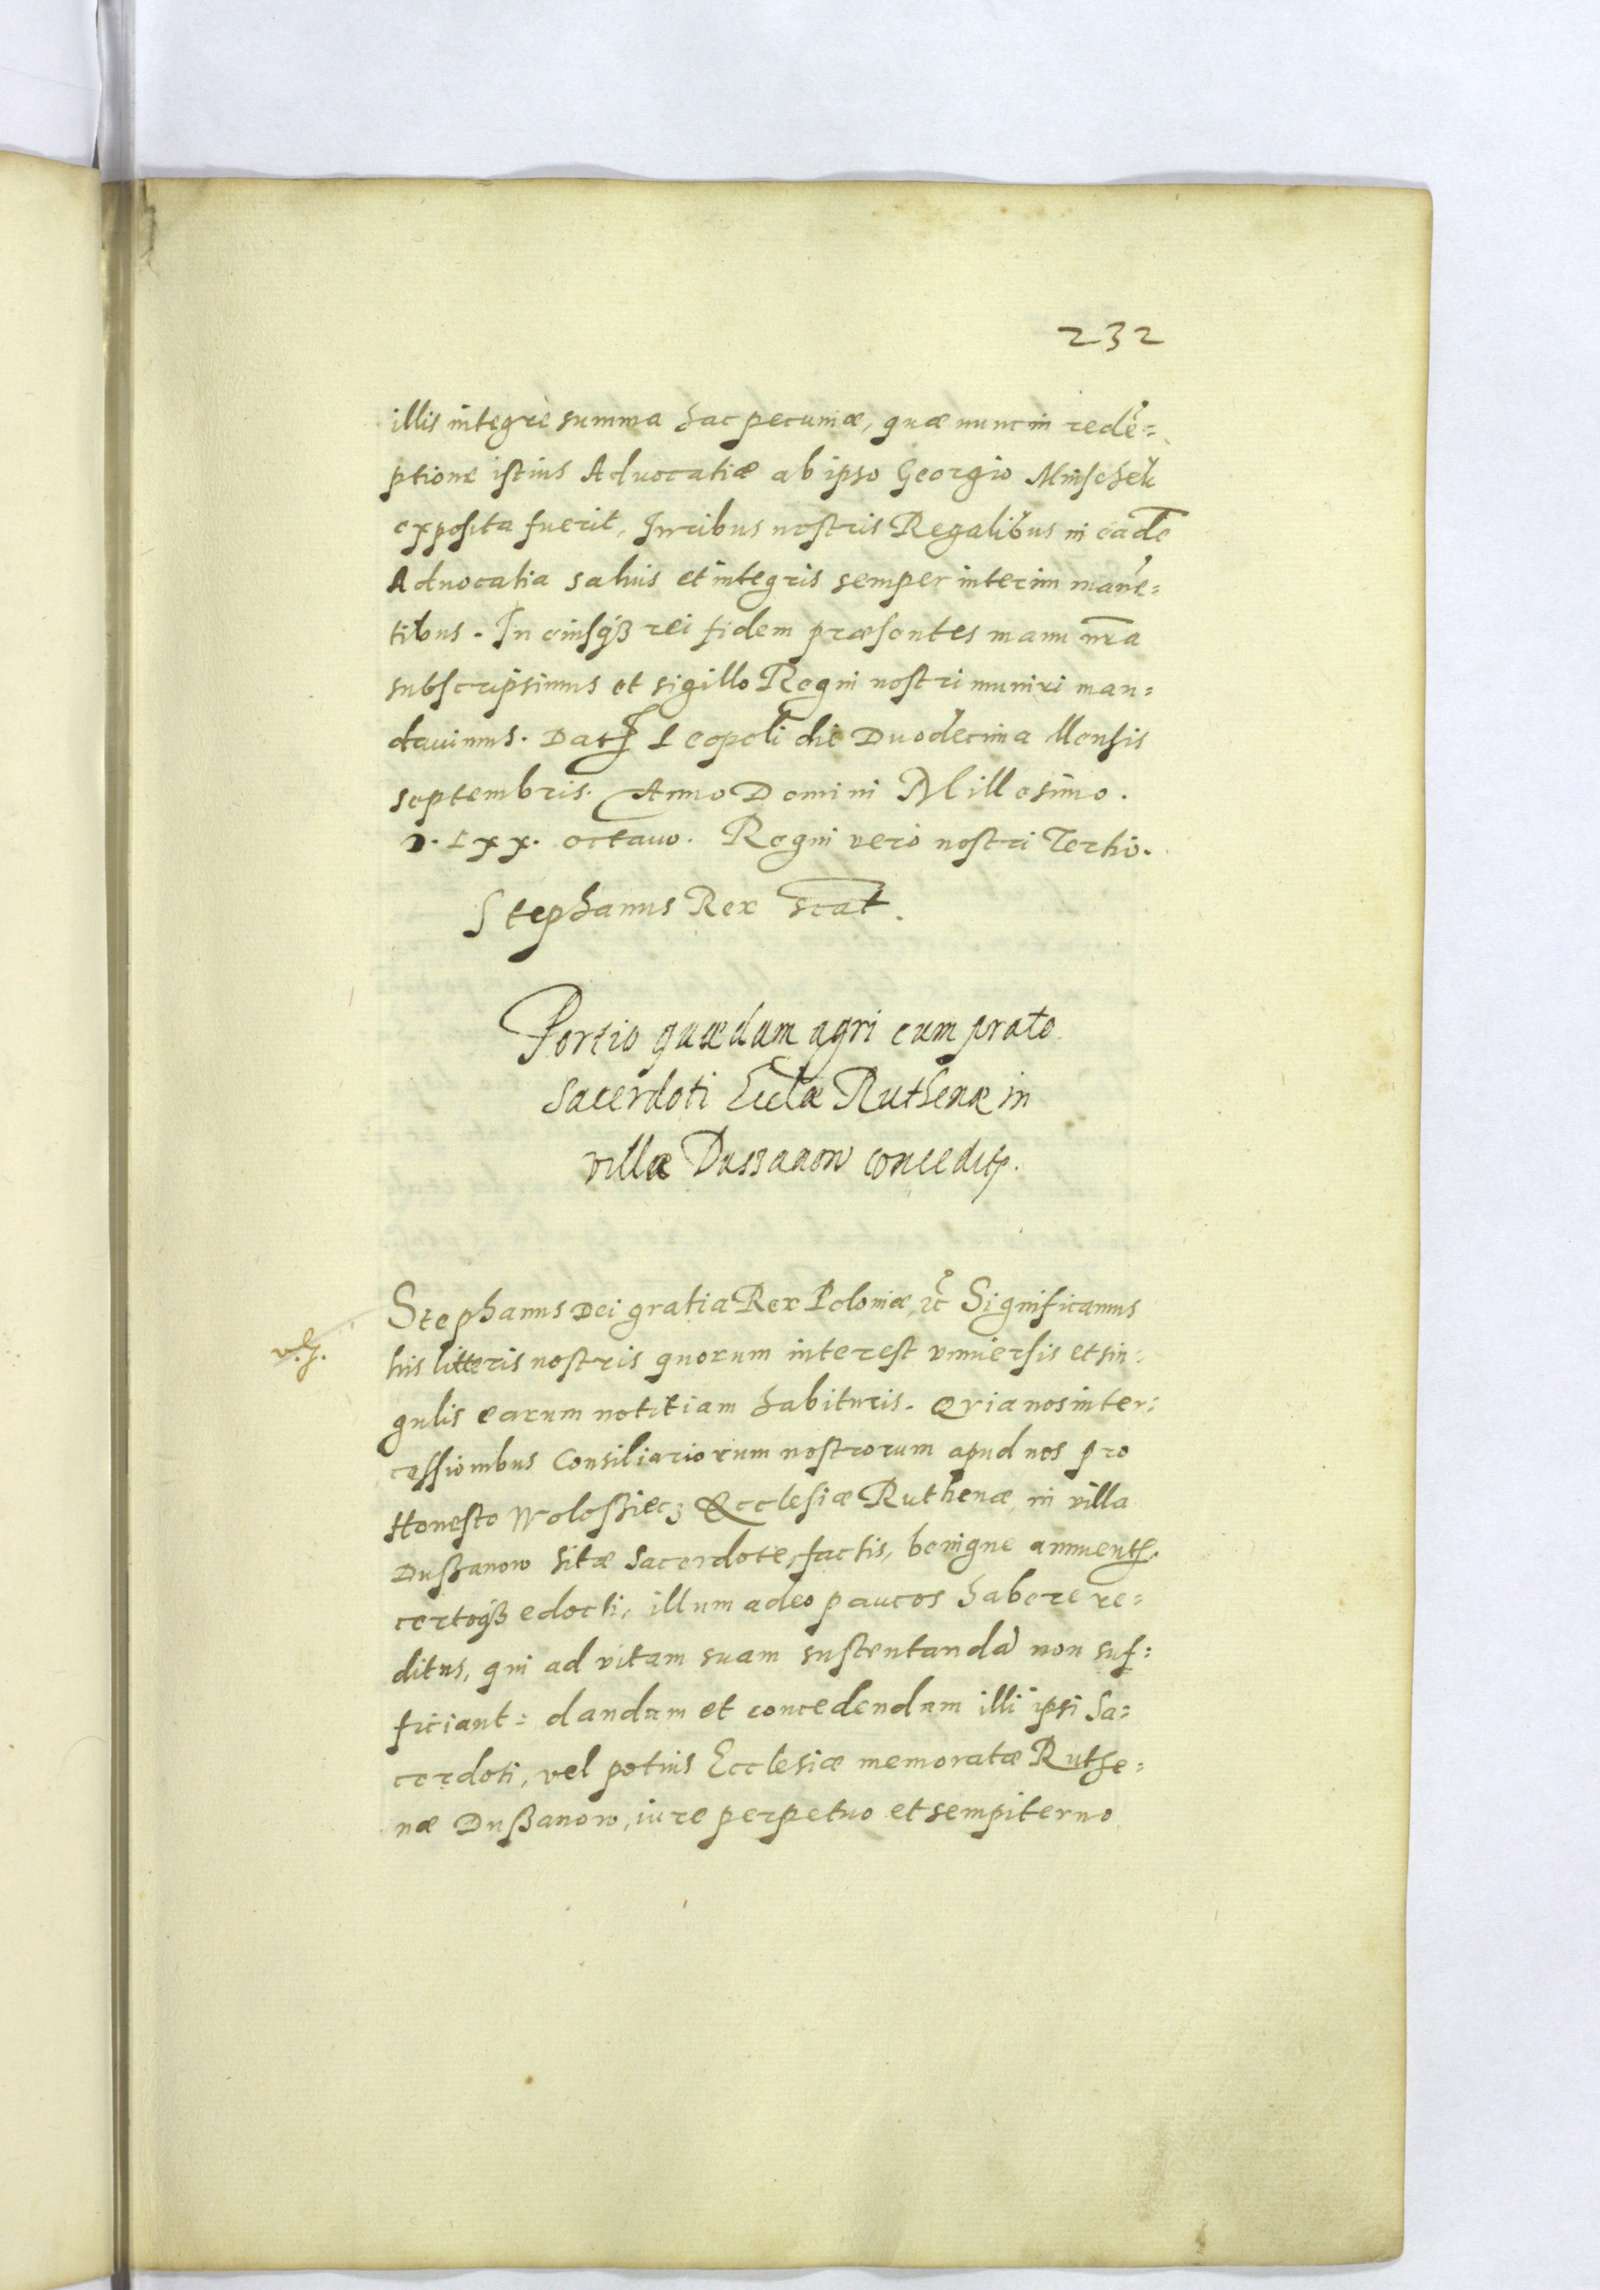 232
illis integrè summa hac pecuniæ, quæ nunc in redē=
ptione istius Aduocatiæ ab ipso Georgio Mnischek
exposita fuerit, Iuribus nostris Regalibus in eadē
Aduocatia saluis et integris semper interim manē=
tibus. In cuiusqȝ rei fidem præsentes manu nr̄a
subscripsimus et sigillo Regni nostri muniri man=
dauimus. Datꝭ Leopoli die Duodecima Mensis
septembris. Anno Domini Millesimo.
D. Lxx. octauo. Regni vero nostri Tertio.
Stephanus Rex scat.
Portio quædam agri cum prato
Sacerdoti Eccłæ Ruthenæ in
villæ Dussanow conceditꝭ.
Stephanus Dei gratia Rex Poloniæ, ꝛc̄ Significamus
his litteris nostris quorum interest vniuersis et sin=
gulis earum notitiam habituris. Quia nos inter=
cessionibus Consiliariorum nostrorum apud nos pro
Honesto Woloßiecz Ecclesiæ Ruthenæ, in villa
Dußanow sitæ Sacerdote, factis, benigne annuentꝭ.
certoqȝ edocti, illum adeo paucos habere re=
ditus, qui ad vitam suam sustentandā non suf=
ficiant: dandum et concedendum illi ipsi Sa=
cerdoti, vel potius Ecclesiæ memoratæ Ruthe=
næ Dußanow, iure perpetuo et sempiterno